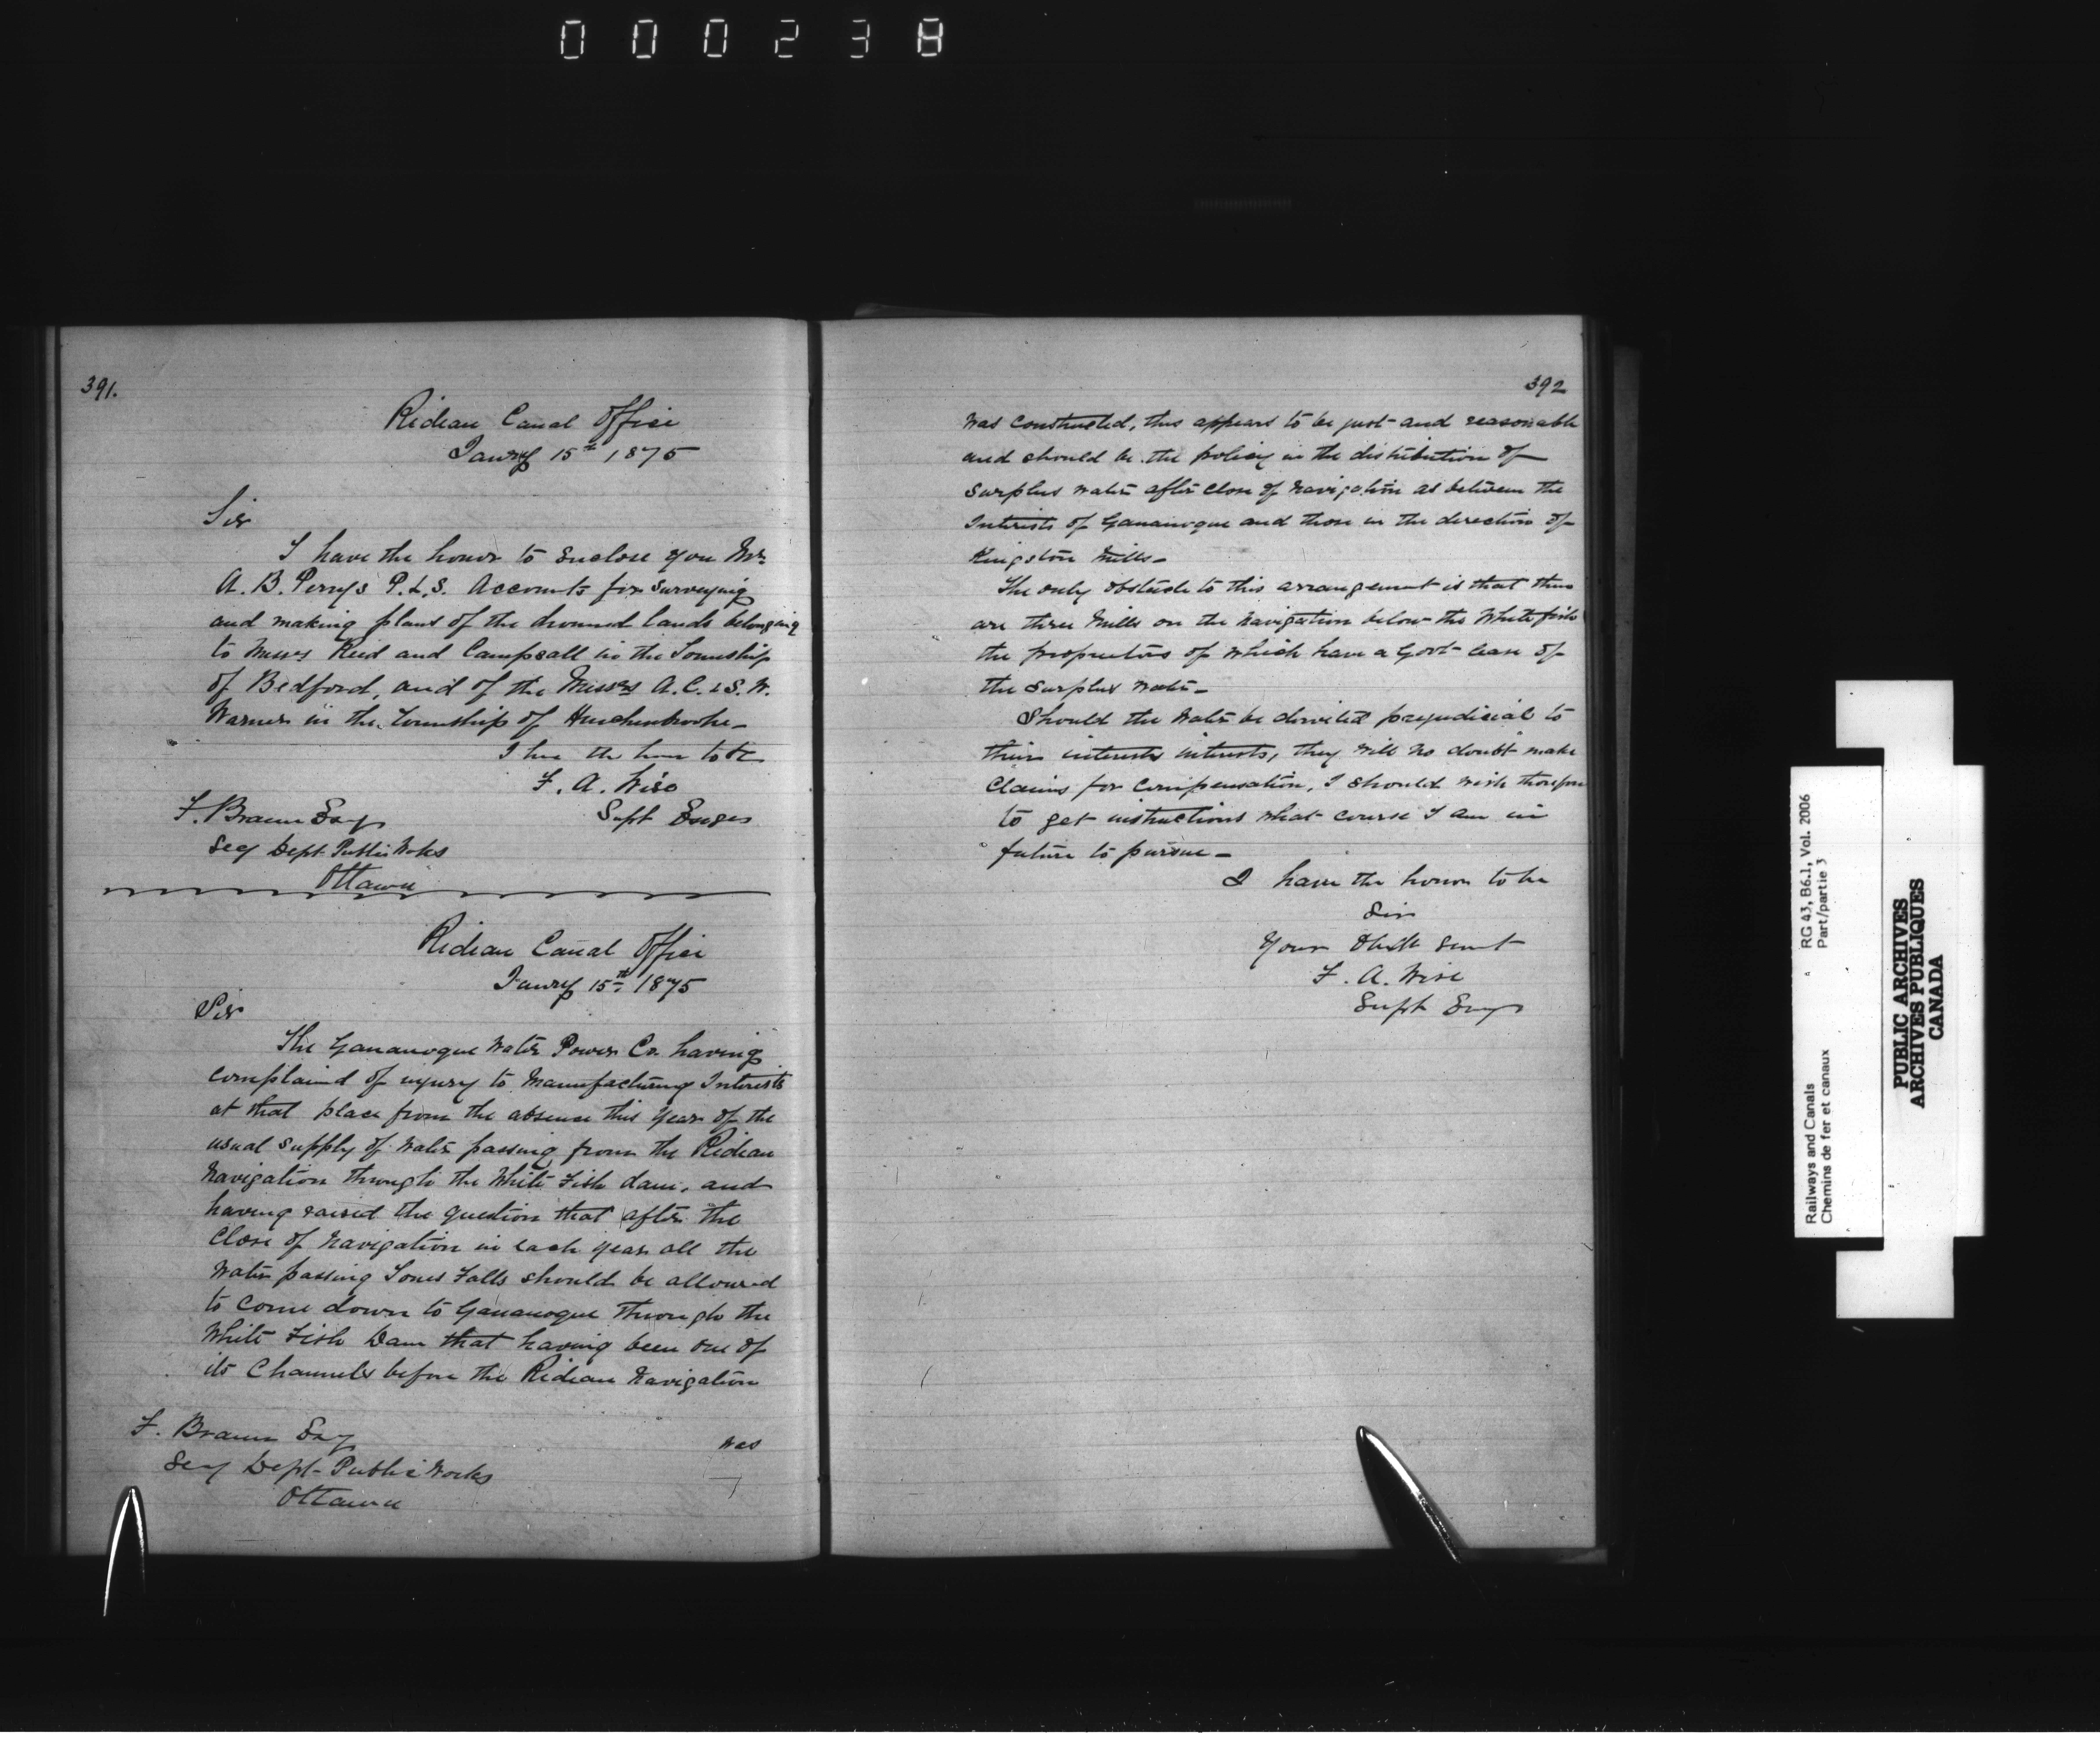 000238
391.
Rideau Canal Office
Jany 15th 1875
Sir
I have the honor to enclose you Mr.
A. B. Perrys P.L.S. Accounts for surveying
and making plans of the drowned lands belonging
to Messrs Reid and Campsall in the Township
of Bedford, and of the Messrs A.C. & S.W.
Warner in the Township of Hinchinbrooke
I have the honor to be
F. A. Wise
F. Braun Esq
Supt Engr
Secy Dept Public Works
Ottawa
Rideau Canal Office
Jany 15th 1875
Sir
The Gananoque Water Power Co. having
complained of injury to Manufacturing Interests
at that place from the absence this year of the
usual supply of water passing from the Rideau
Navigation through the White Fish dam, and
having raised the question that after the
Close of navigation in each year all the
water passing Jones Falls should be allowed
to come down to Gananoque through the
White Fish Dam that having been one of
its Channels before the Rideau Navigation
F. Braun Esq
was
Secy Dept Public Works
Ottawa
392
was constructed, this appears to be just and reasonable
and should be the policy in the distribution of
surplus water after close of navigation as between the
Interests of Gananoque and those in the direction of
Kingston Mills-
The only obstacle to this arrangement is that there
are three Mills on the navigation below the White fish
the proprietors of which have a Govt lease of
the surplus water-
Should the water be diverted prejudicial to
their interests interests, they will no doubt make
Claims for Compensation, I should wish therefore
to get instructions what course I am in
future to pursue-
I have the honor to be
Sir
Your Obdt Servt
F. A. Wise
Supt Engr
Railways and Canals
Chemins de fer et canaux
RG 43, B6.1, Vol. 2006
Part/partie 3
PUBLIC ARCHIVES
ARCHIVES PUBLIQUES
CANADA